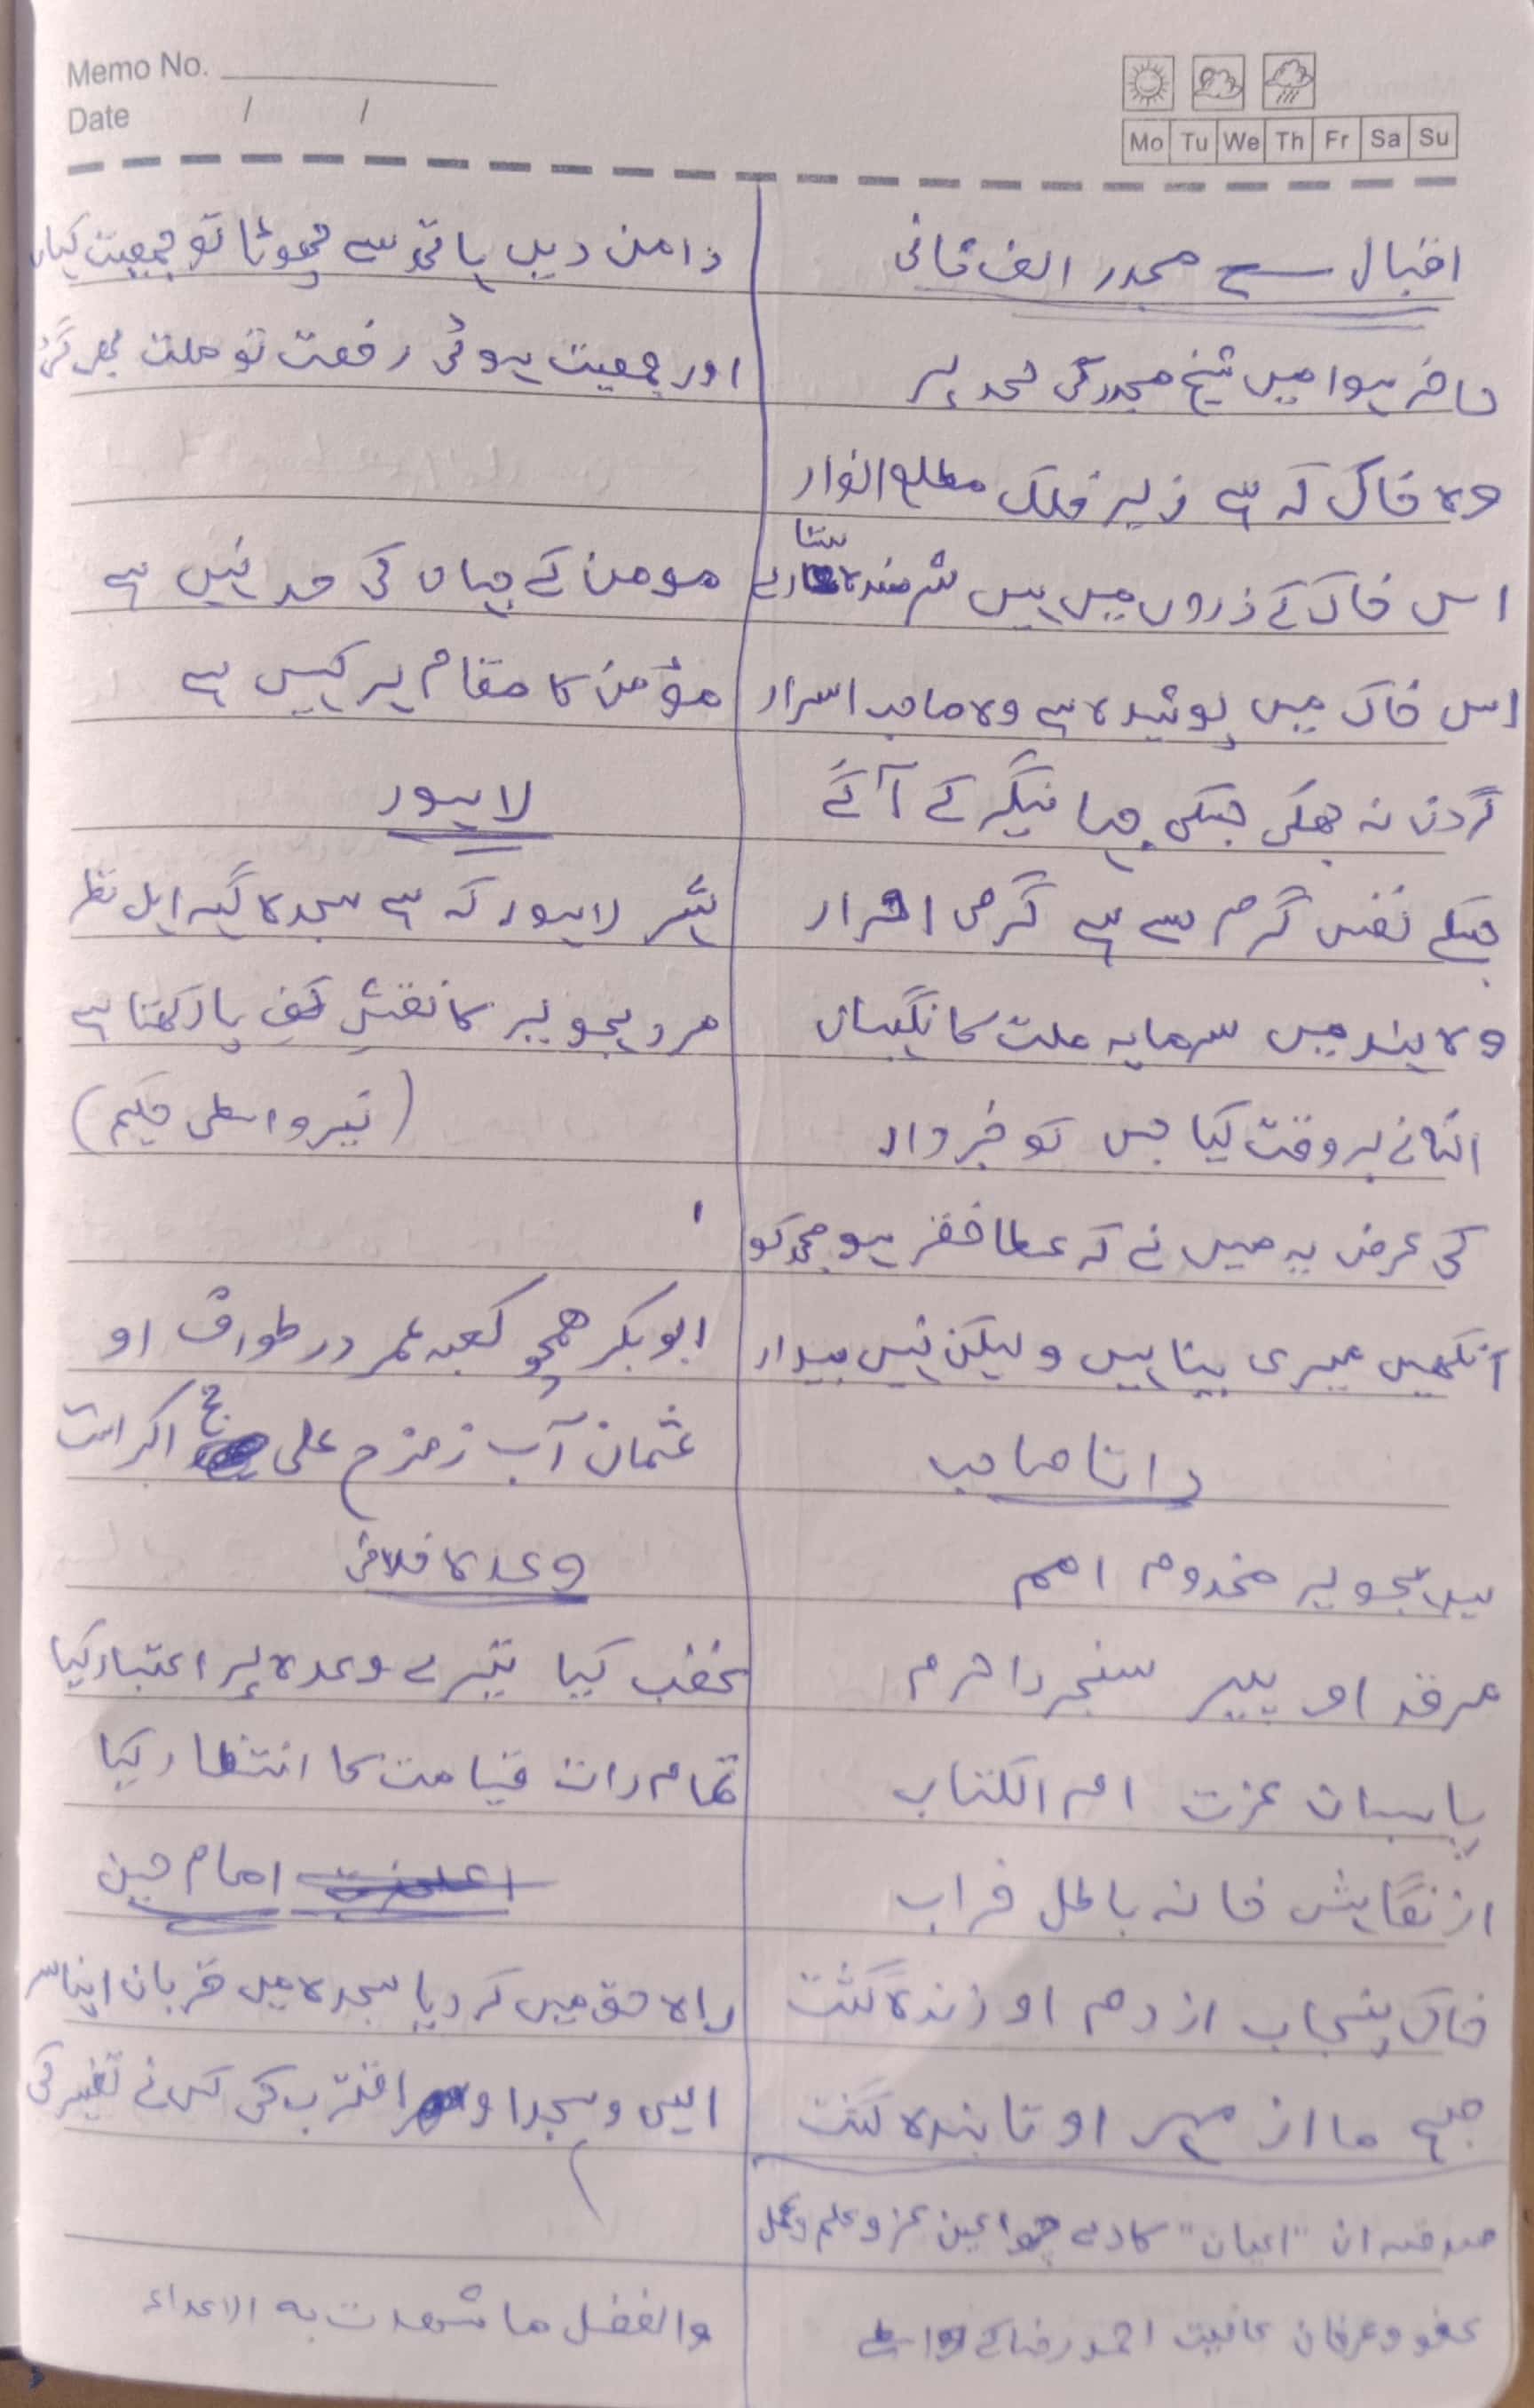 Memo No.
Date / /
Mo Tu We Th Fr Sa Su
اقبال سے مجدد الف ثانی
حاضر ہوا میں شیخ مجدد کی لحد پر
وہ خاک کہ ہے زیر فلک مطلع انوار
اس خاک کے ذروں میں ہیں شرمندہ ستارے
اس خاک میں پوشیدہ ہے وہ صاحب اسرار
گردن نہ جھکی جسکی جہانگیر کے آگے
جسکے نفس گرم سے ہے گرمی احرار
وہ ہند میں سرمایہ ملت کا نگہبان
اللہ نے بر وقت کیا جس کو خبردار
کی عرض یہ میں نے کہ عطا فقر ہو مجھ کو
آنکھیں میری بینا ہیں ولیکن نہیں بیدار
داتا صاحب
سید ہجویر مخدوم امم
مرقد او پیر سنجر را حرم
پاسبان عزت ام الکتاب
از نگاہش خانہ باطل خراب
خاک پنجاب از دم او زندہ گشت
صبح ما از مہر او تابندہ گشت
صدقہ ان "اعیان" کا دے چھ عین عز و علم و عمل
عفو و عرفان عافیت احمد رضا کے واسطے
دامن دیں ہاتھ سے چھوٹا تو جمعیت کہاں
اور جمعیت ہوئی رخصت تو ملت بھی گئی
مومن کے جہاں کی حد نہیں ہے
مؤمن کا مقام ہر کہیں ہے
لاہور
شہر لاہور کہ ہے سجدہ گہ اہل نظر
مرد ہجویر کا نقشِ کفِ پا رکھتا ہے
(نیر واسطی حکیم)
ابوبکر ھمچو کعبہ عمر در طواف او
عثمان آب زمزم علی حج اکبر است
وعدہ خلافی
غضب کیا تیرے وعدہ پر اعتبار کیا
تمام رات قیامت کا انتظار کیا
امام حسین
راہ حق میں کر دیا سجدہ میں قربان اپنا سر
ایسی وسجدا و اقترب کی کس نے تفسیر کی
والفضل ما شھدت بہ الاعداء